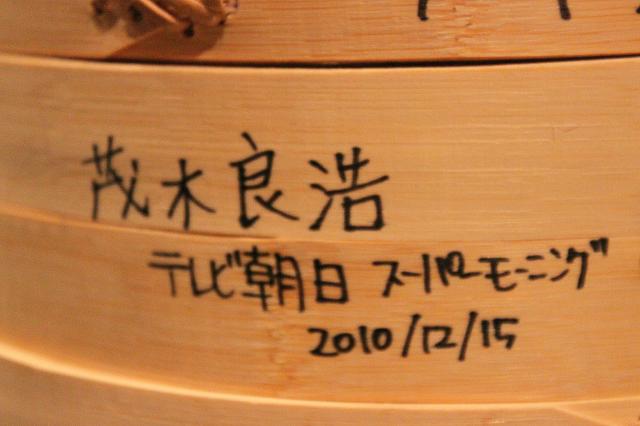 茂木良浩
テレビ朝日 スーパーモーニング
2010/12/15